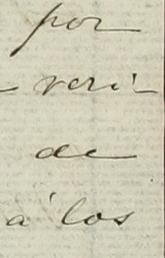 por
- veri-
de
á los